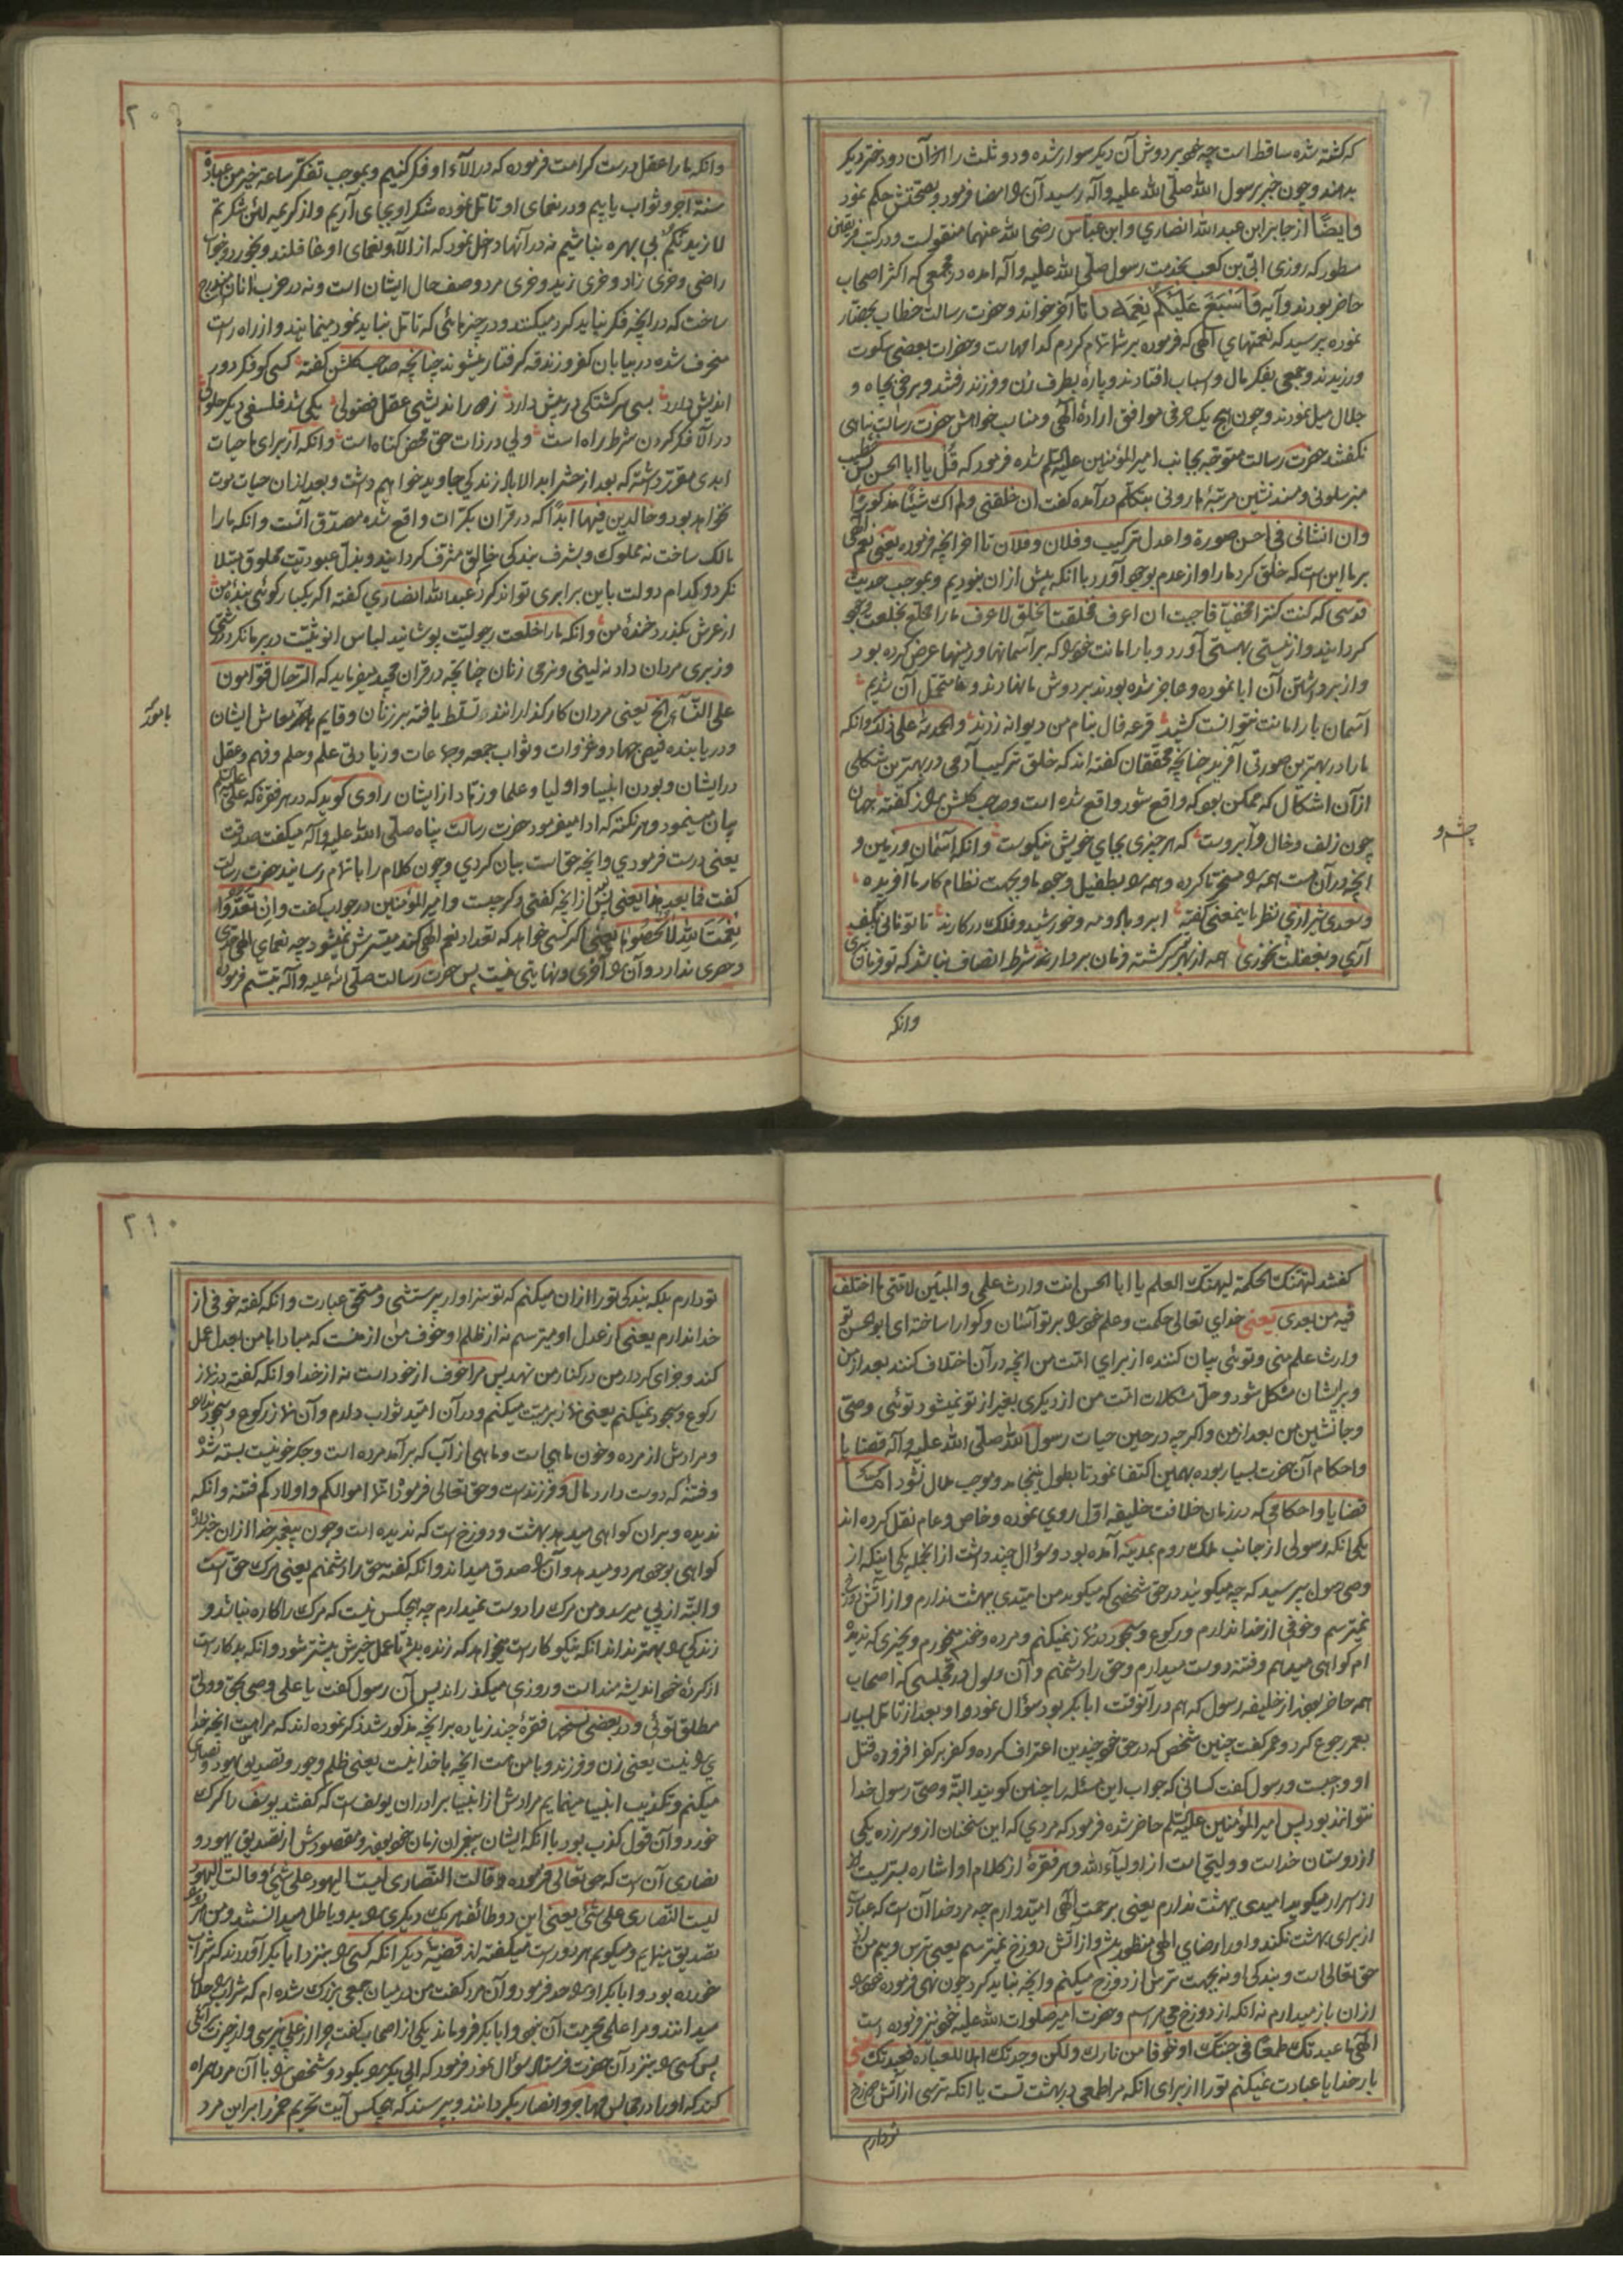 که کشته شده ساقط است چه خود بر دوش آن دیگر سوار شده و دو ثلث را از آن دو دختر دیگر
بدهند و چون خبر برسول الله صلّی الله علیه وآله رسید آن را امضا فرمود و بصحتش حکم نمود
وایضًا از جابر ابن عبد الله انصاری وابن عباس رضی الله عنهما منقولست ودر کتب فریقین
مسطور که روزی ابّی بن کعب بخدمت رسول صلّی الله علیه وآله امده در مجمعی که اکثر اصحاب
حاضر بودند وآیه وَاَسْبَغَ عَلَیْکُمْ نِعَمَهُ تا آخر خواند وحضرت رسالت خطاب بحضّار
نموده پرسید که نعمتهای الهی که فرموده بر شما تمام کردم کدامهاست وحضرات بعضی سکوت
ورزیدند وجمعی بفکر مال واسباب افتادند و پارهٔ بطرف زن وفرزند رفتند وبرخی بجاه و
جلال میل نمودند وچون هیچ یک حرفی موافق ارادهٔ الهی ومناسب خواهش حضرت رسالت پناهی
نگفتند حضرت رسالت متوجه بجانب امیر المؤمنین علیه السلم شده فرمود که قُل یا ابا الحسن پس خطیب
منبر سلونی ومسند نشین مرتبهٔ هارونی بتکلّم در آمده گفت ان خلقنی ولم اک شیئًا مذکورًا
وان انشانی فی احسن صورة واعدل ترکیب وفلان وفلان تا اخر انچه فرموده یعنی نعم الهی
بر ما این است که خلق کرد ما را واز عدم بوجود آورد با انکه پیش از ان نبودیم وبموجب حدیث
قدسی که کنت کنزا مخفیّا فاحببت ان اعرف فخلقت الخلق لاعرف ما را مخلّع بخلعت وجود
گردانید واز نیستی بهستی آورد وبار امانت خود را که بر آسمانها وزمینها عرض کرده بود
واز برداشتن آن ابا نموده وعاجز شده بودند بر دوش ما نهادند وما متحمّل آن شدیم
آسمان بار امانت نتوانست کشید قرعهٔ فال بنام من دیوانه زدند والحمد لله علی ذلک وانکه
ما را در بهترین صورتی آفرید چنانچه محقّقان گفته اند که خلق ترکیب آدمی در بهترین شکلی
از آن اشکال که ممکن بود که واقع شود واقع شده است وصاحب گلشن راز گفته جهان
چون زلف وخال و ابروست که هر چیزی بجای خویش نیکوست وانکه آسمان وزمین و
انچه در آن هست همه را مسخّر ما کرده وهمه را بطفیل وجود ما وبجهت نظام کار ما آفریده
وسعدی شیرازی نظر باینمعنی گفته ابر وباد ومه وخورشید وفلک در کارند تا تو نانی بکف
آری وبغفلت نخوری همه از بهر تو سرگشته وفرمان بردار شرط انصاف نباشد که تو فرمان نبری
چشم و
وانکه
۲۰۹
وانکه ما را عقل درست کرامت فرموده که در الآء او فکر کنیم وبموجب تفکّر ساعة خیر من عبادة
سنة اجر وثواب یابیم ودر نعمای او تامّل نموده شکر او بجای آریم واز کریمه لئن شکرتم
لازیدنّکم بی بهره نباشیم نه در آنها دخل نمود که از الآء ونعمای او غافلند وبخورد وخواب
راضی وخری زاد وخری زید وخری مرد وصف حال ایشان است ونه در حزب انان مندرج
ساخت که در انچه فکر نباید کرد میکنند ودر چیزهائی که تامّل نباید نمود مینمایند واز راه راست
منحرف شده در بیابان کفر وزندقه گرفتار میشوند چنانچه صاحب گلشن گفته کسی کو فکر دور
اندیش دارد بسی سرگشتگی در پیش دارد ز دور اندیشی عقل فضولی یکی شد فلسفی دیگر حلولی
در الآ فکر کردن شرط راه است ولی در ذات حق محض گناه است وانکه از برای ما حیات
ابدی مقرّر داشته که بعد از حشر ابد الاباد زندگی جاوید خواهیم داشت وبعد از ان حیات موت
نخواهد بود وخالدین فیها ابدًا که در قران بکرّات واقع شده مصدّق آنست وانکه ما را
مالک ساخت نه مملوک وبشرف بندگی خالق مشرّف گردانید وبذلّ عبودیّت مخلوق مبتلا
نکرد وکدام دولت باین برابری تواند کرد عبد الله انصاری گفته اگر یکبار گوئی بندهٔ من
از عرش بگذرد خندهٔ من وانکه ما را خلعت رجولیّت پوشانید لباس انوثیّت در بر ما نکرد درشتی
وزبری مردان داد نه لینی ونرمی زنان چنانچه در قران مجید میفرماید که الرّجال قوّامون
علی النّسآء الخ یعنی مردان کارگذارانند وتسلّط یافته بر زنان وقایم معاش ایشان
بامور
ودریابنده فیض جهاد وغزوات وثواب جمعه وجماعات وزیادتی علم وحلم وفهم وعقل
در ایشان وبودن انبیا واولیا وعلما وزهّاد از ایشان راوی گوید که در هر فقرهٔ که علی علیه السلم
بیان مینمود وهر نکته که ادا میفرمود حضرت رسالت پناه صلّی الله علیه وآله میگفت صدقت
یعنی درست فرمودی وانچه حق است بیان کردی وچون کلام را باتمام رسانید حضرت رسالت
گفت فما بعد هذا یعنی پس از انچه گفتی دگر چیست وامیر المؤمنین در جواب گفت وان تَعُدّوا
نِعْمَتَ اللهِ لا تُحْصُوها یعنی اگر کسی خواهد که تعداد نعم الهی کند میسّرش نمیشود چه نعمای الهی حدّی
وحصری ندارد وآن را آخری ونهایتی نیست پس حضرت رسالت صلّی الله علیه وآله تبسّم فرموده
گفتند لتهنّک الحکمة لیهنّک العلم یا ابا الحسن انت وارث علمی والمبیّن لامّتی ما اختلف
فیه من بعدی یعنی خدای تعالی حکمت وعلم خود را بر تو آسان وگوارا ساخته ای ابو الحسن تو
وارث علم منی وتوئی بیان کننده از برای امّت من انچه در آن اختلاف کنند بعد از من
وبر ایشان مشکل شود وحلّ مشکلات امّت من از دیگری بغیر از تو نمیشود توئی وصی
وجانشین من بعد از من واگرچه در حین حیات رسول الله صلّی الله علیه وآله قضایا
واحکام آن حضرت بسیار بوده بهمین اکتفا نمود تا بطول نینجامد وموجب ملال نشود امّا
قضایا واحکامی که در زمان خلافت خلیفه اوّل روی نموده وخاص وعام نقل کرده اند
یکی انکه رسولی از جانب ملک روم بمدینه آمده بود وسؤال چند داشت از انجمله یکی اینکه از
وصی رسول پرسید که چه میگویید در حق شخصی که میگوید من امّیدی ببهشت ندارم واز آتش دوزخ
نمیترسم وخوفی از خدا ندارم ورکوع وسجود در نماز نمیکنم ومرده وخون میخورم وبچیزی که ندیده
ام گواهی میدهم وفتنه دوست میدارم وحق را دشمنم وآن رسول در مجلسی که اصحاب
همه حاضر بودند از خلیفه رسول که هم در آنوقت ابا بکر بود سؤال نمود واو بعد از تامّل بسیار
بعمر رجوع کرد وعمر گفت چنین شخص که در حق خود چنین اعتراف کرده وکفر بر کفر افزوده قتل
او واجبست ورسول گفت کسانی که جواب این مسئله را چنین گویند البتّه وصیّ رسول خدا
نتوانند بود پس امیر المؤمنین علیه السلم حاضر شده فرمود که مردی که این سخنان از و سر زده یکی
از دوستان خداست وولیّی است از اولیآء الله وهر فقرهٔ از کلام او اشاره بسرّیست
از اسرار میگوید امیدی ببهشت ندارم یعنی برحمت الهی امیّدوارم چه مرد خدا آن است که عبادت
از برای بهشت نکند واو را رضای الهی منظور باشد واز آتش دوزخ نمیترسم یعنی ترس وبیم من از
حق تعالی است وبندگی او نه بجهت ترس از دوزخ میکنم وانچه نباید کرد چون نهی فرموده خود را
از ان باز میدارم نه انکه از دوزخ میترسم وحضرت امیر صلوات الله علیه خود نیز فرموده است
الهی ما عبدتک طمعًا فی جنّتک او خوفا من نارک ولکن وجدتک اهلا للعبادة فعبدتک یعنی
بار خدایا عبادت نمیکنم تو را از برای انکه مرا طمعی در بهشت تست یا انکه ترسی از آتش دوزخ
تو دارم
۲۱۰
تو دارم بلکه بندگی تو را از ان میکنم که تو سزاوار پرستشی ومستحق عبادت وانکه گفته خوفی از
خدا ندارم یعنی از عدل او میترسم نه از ظلم او وخوف من از منست که مبادا با من بعدل عمل
کند وجزای کردار من در کنار من نهد پس مرا خوف از خود است نه از خدا وانکه گفته در نماز
رکوع وسجود نمیکنم یعنی نماز بر میّت میکنم ودر آن امّید ثواب دارم وآن نماز رکوع وسجود ندارد
ومرادش از مرده وخون ماهی است وماهی از آب که بر آمد مرده است وجگر خونیست بسته شده
وفتنهٔ که دوست دارد مال وفرزندست وحق تعالی فرمود انّما اموالکم واولادکم فتنه وانکه
ندیده وبر ان گواهی میدهد بهشت ودوزخ است که ندیده است وچون پیغمبر خدا از ان خبر داده
گواهی بوجود هر دو میدهد وآن را صدق میداند وانکه گفته حق را دشمنم یعنی مرگ حق است
والبتّه از پی میرسد ومن مرگ را دوست نمیدارم چه هیچکس نیست که مرگ را کاره نباشد و
زندگی را بهتر نداند انکه نیکو کار است میخواهد که زنده باشد تا عمل خیرش بیشتر شود وانکه بدکار است
از کردهٔ خود اندیشه مند است وروزی میگذراند پس آن رسول گفت یا علی وصی بحق وولیّ
مطلق توئی ودر بعضی نسخها فقرهٔ چند زیاده بر انچه مذکور شد ذکر نموده اند که مراهست انچه خدا
را نیست یعنی زن وفرزند وبا من هست انچه با خدا نیست یعنی ظلم وجور وتصدیق یهود ونصاری
میکنم وتکذیب انبیا مینمایم مرادش از انبیا برادران یوسف است که گفتند یوسف را گرگ
خورد وآن قول کذب بود با انکه ایشان پیغمبران زمان خود بودند ومقصودش از تصدیق یهود و
نصاری آن است که حق تعالی فرموده وقالت النّصاری لیست الیهود علی شیء وقالت الیهود
لیست النّصاری علی شیء یعنی این دو طائفه هر یک دیگری را بد وباطل میدانستند ومن هر دو را
تصدیق مینمایم ومیگویم هر دو راست میگفته اند قضیّهٔ دیگر انکه کسی را بنزد ابا بکر آوردند که شراب
خورده بود وابا بکر او را حد فرمود وآن مرد گفت من در میان جمعی بزرگ شده ام که شراب را حلال
میدانند ومرا علمی بحرمت آن نبود وابا بکر فرو ماند یکی از اصحاب گفت چرا از علی نپرسی
پس کسی را بنزد آن حضرت فرستاد سؤال نمود فرمود که ابی بکر را بگو دو شخص را با آن مرد همراه
کند که او را در مجالس مهاجر وانصار بگردانند وبپرسند که هیچکس آیت تحریم خمر را بر این مرد